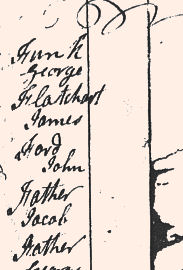 Funk
George
Flatchart
James
Ford
John
Father
Jacob
Father
George